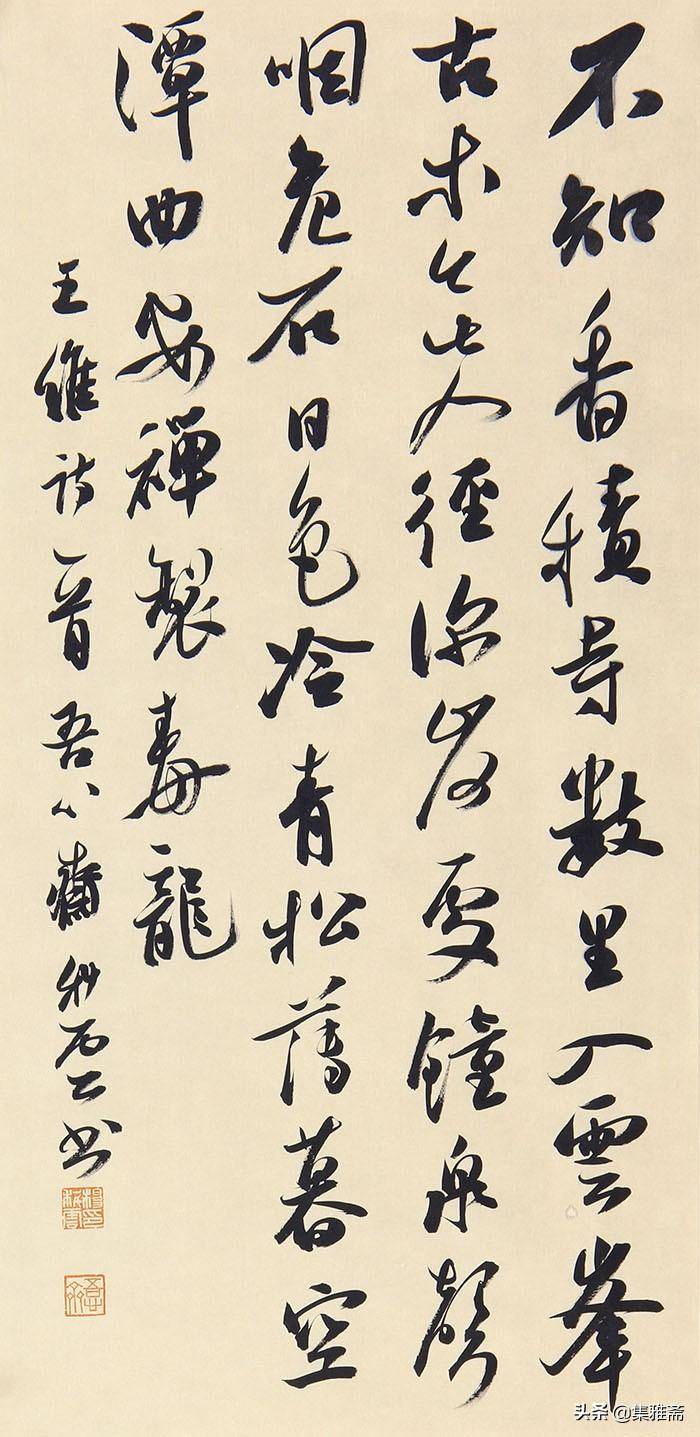 不知香積寺數里入雲峯
古木無人徑深山何處鐘泉聲
咽危石日色冷青松薄暮空
潭曲安禪製毒龍
王維詩一首吾心齋書
头条 @集雅斋